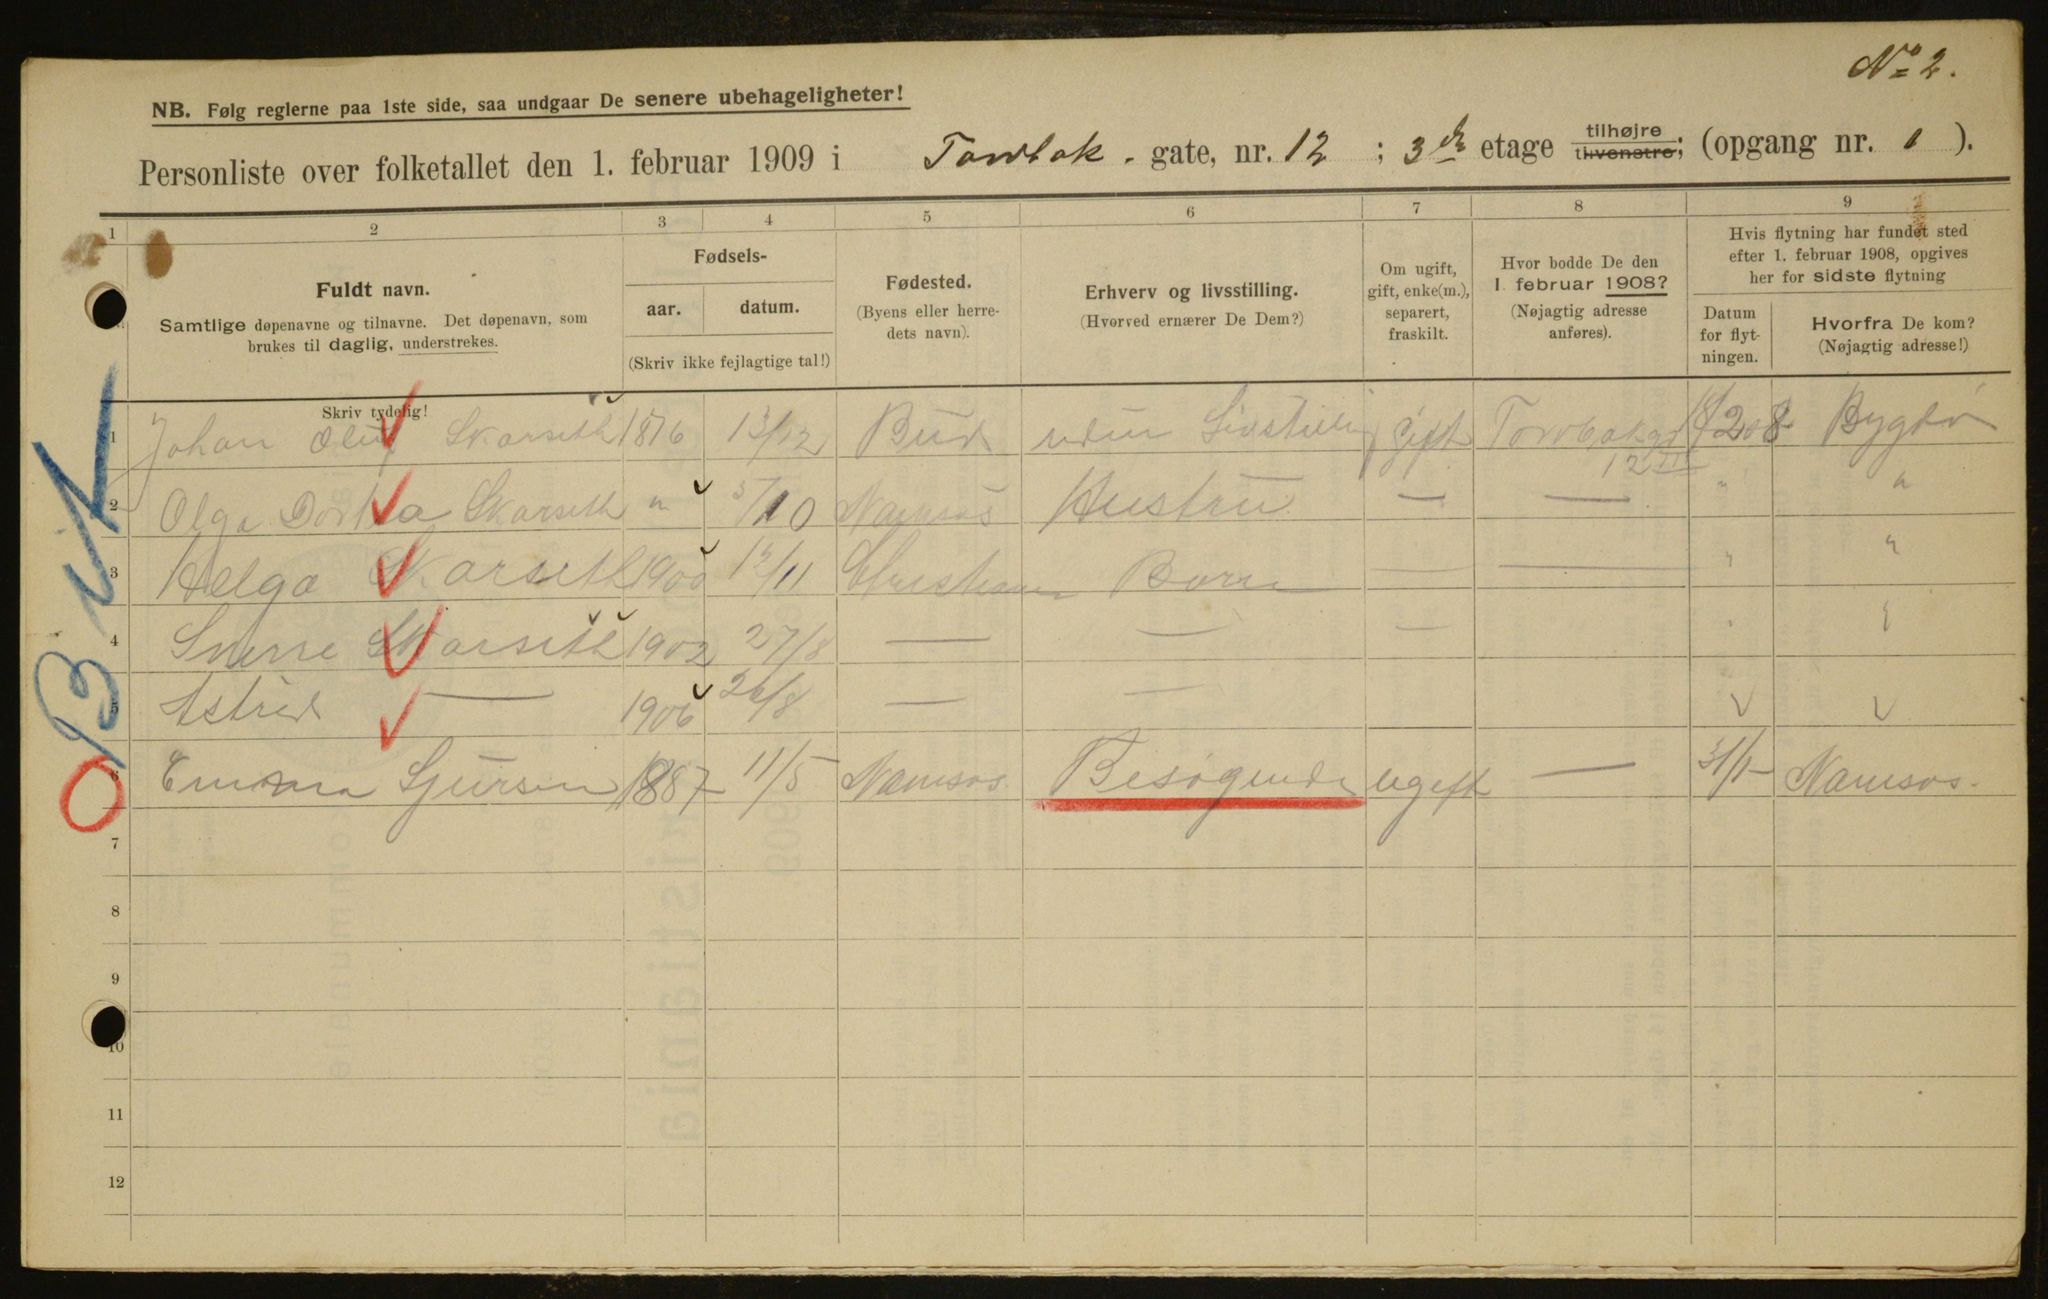 No 2.
NB. Følg reglerne paa 1ste side, saa undgaar De senere ubehageligheter!
Personliste over folketallet den 1. februar 1909 i Torvbak. gate, nr. 12 ; 3de etage tilhøjre tilvenstre; (opgang nr. 1 ).
1 2 3 4 5 6 7 8 9
Fuldt navn.
Samtlige døpenavne og tilnavne. Det døpenavn, som
brukes til daglig, understrekes.
Skriv tydelig!
Fødsels-
aar. datum.
(Skriv ikke fejlagtige tal!)
Fødested.
(Byens eller herre-
dets navn).
Erhverv og livsstilling.
(Hvorved ernærer De Dem?)
Om ugift,
gift, enke(m.),
separert,
fraskilt.
Hvor bodde De den
1. februar 1908?
(Nøjagtig adresse
anføres).
Hvis flytning har fundet sted
efter 1. februar 1908, opgives
her for sidste flytning
Datum
for flyt-
ningen.
Hvorfra De kom?
(Nøjagtig adresse!)
1 Johan Oluf Skarseth 1876 13/12 Bud uden Livstilling gift Torvbakgd 12 III 208 Bygdø
2 Olga Dortea Skarseth " 5/10 Namsos Hustru — — " "
3 Helga Skarseth 1900 12/11 Børn — — " "
4 Sverre Skarseth 1902 27/8 — — —
5 Astrid — 1906 26/8 — —
6 Emma Sjursen 1887 11/5 Namsos Besøgende ugift — 31/1 Namsos.
7
8
9
10
11
12